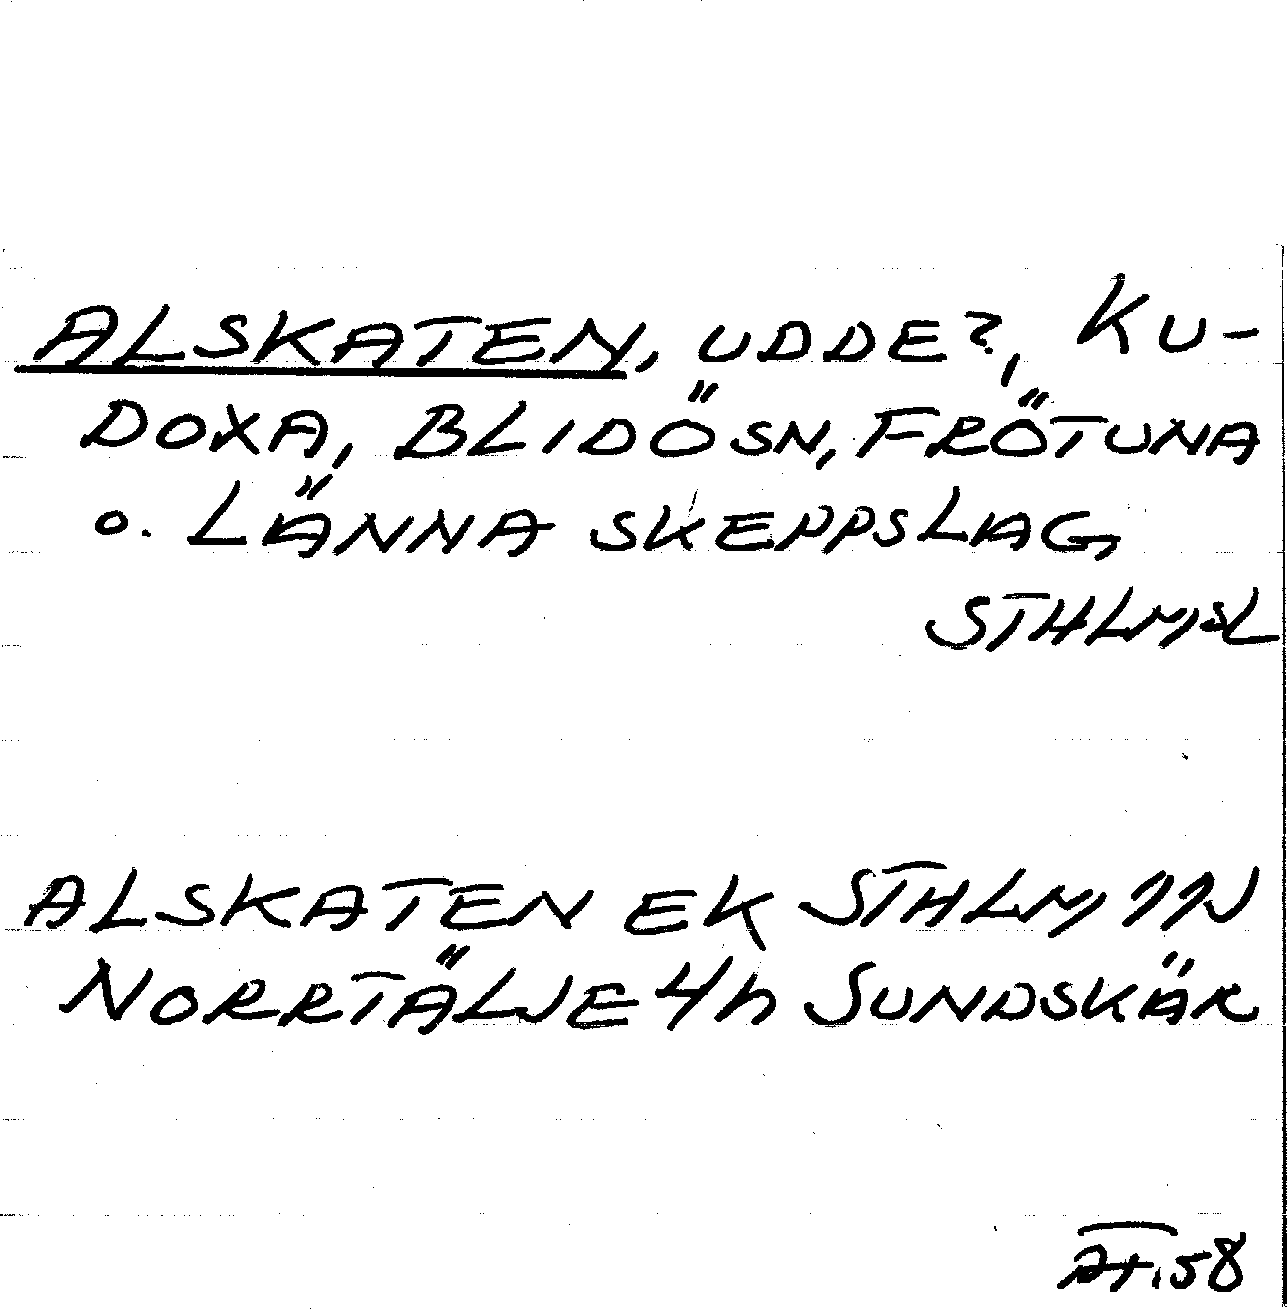 ALSKATEN, UDDE?, KU-
DOXA, BLIDÖSN, FRÖTUNA
O. LÄNNA SKEPPSLAG,
STHLMSL
ALSKATEN EK STHLM
NORRTÄLJE 4h SUNDSKÄR
58